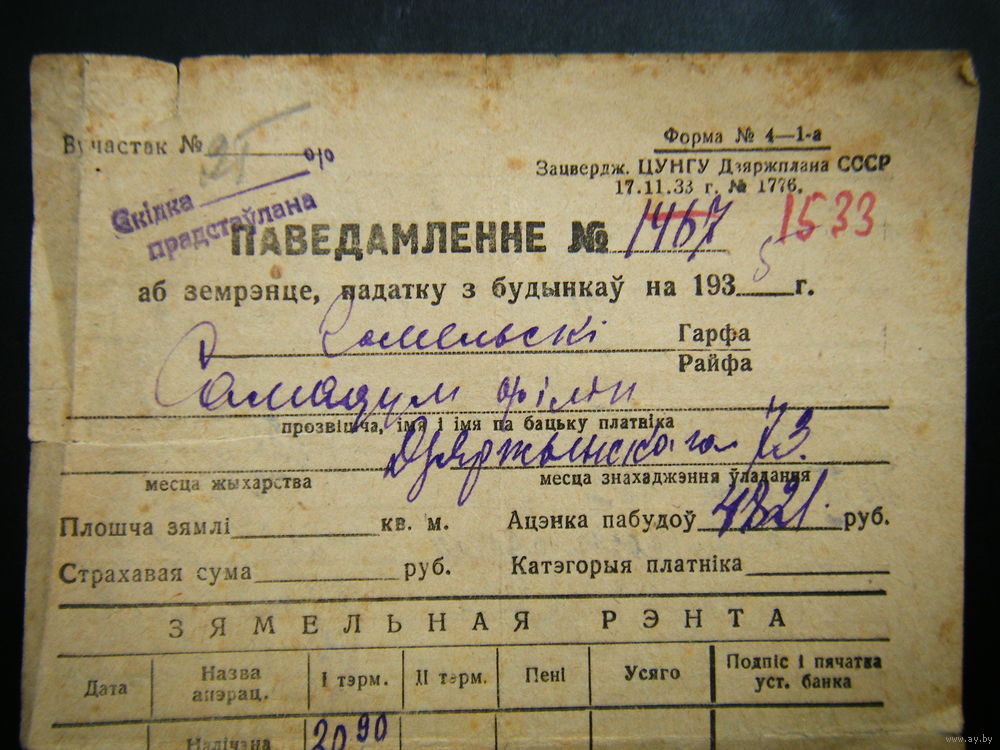 Вучастак №
Форма № 4—1-а
Зацвердж. ЦУНГУ Дзяржплана СССР
17.11.33 г. № 1776.
Скідка ____ %
прадстаўлана
ПАВЕДАМЛЕННЕ № 1467 1533
абземрэнце, падатку з будынкаў на 1935 г.
Гомельскі Гарфа
Райфа
прозвішча, імя і імя па бацьку платніка
Дзяржынскага 73.
месца жыхарства месца знаходжэння ўладання
Плошча зямлі ____ кв. м. Ацэнка пабудоў 4821 руб.
Страхавая сума ____ руб. Катэгорыя платніка ____
ЗЯМЕЛЬНАЯ РЭНТА
Дата Назва аперац. І тэрм. ІІ тэрм. Пені Усяго Подпіс і пячатка уст. банка
Налічана 20 90
www.ay.by